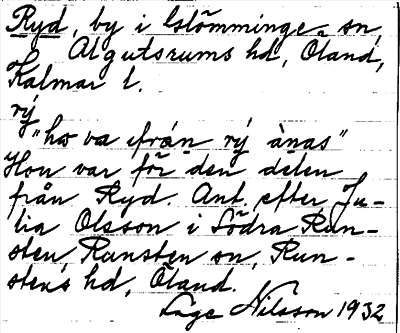 Ryd, by i Glömminge sn,
Algutsrums hd, Öland,
Kalmar l.
rý
"ho va från rý ànas"
Hon var för den delen
från Ryd. Ant. efter Ju-
lia Olsson i Södra Run-
sten, Runsten sn, Run-
stens hd, Öland.
Åge Nilsson 1932